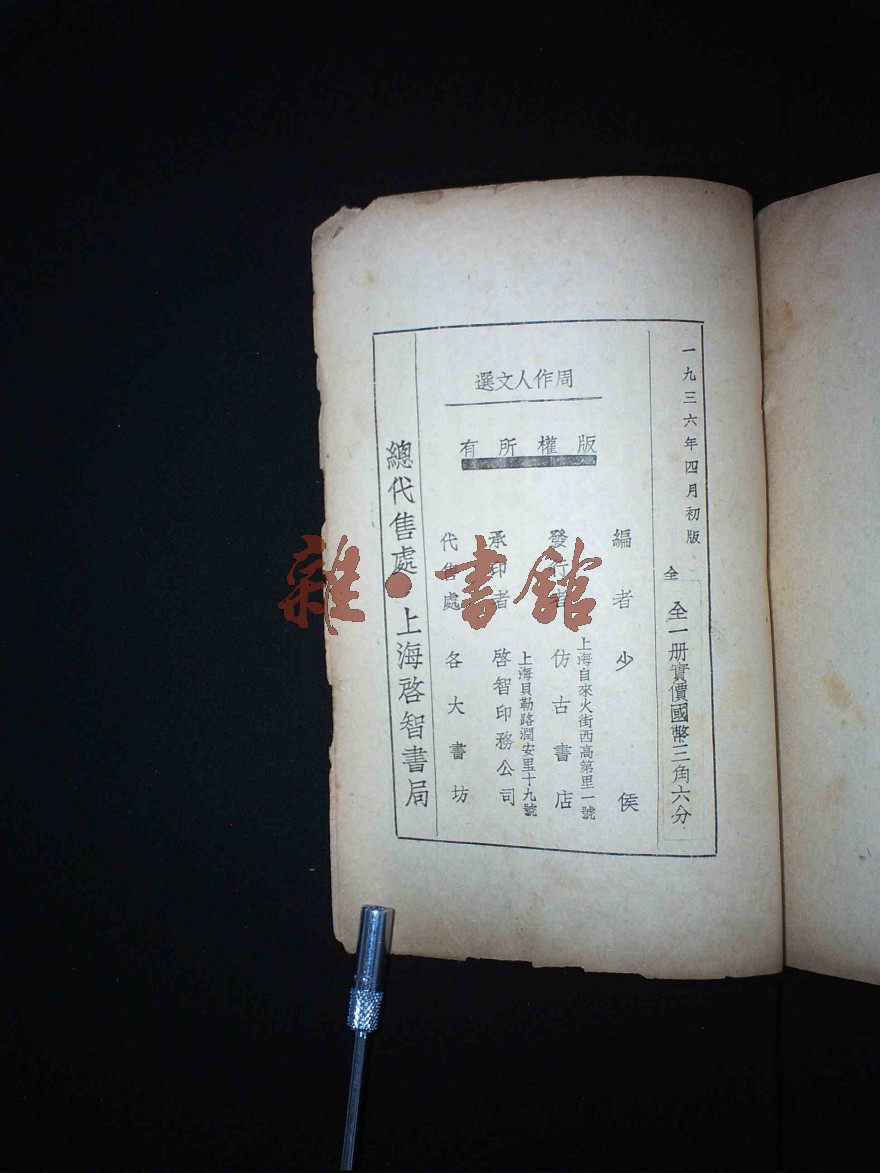 一九三六年四月初版
全
全一册實價國幣三角六分
周作人文選
版權所有
編者少侯
發行者仿古書店
上海自來火街西高第里一號
承印者啓智印務公司
上海貝勒路潤安里十九號
代售處各大書坊
總代售處 上海啓智書局
雜·書館